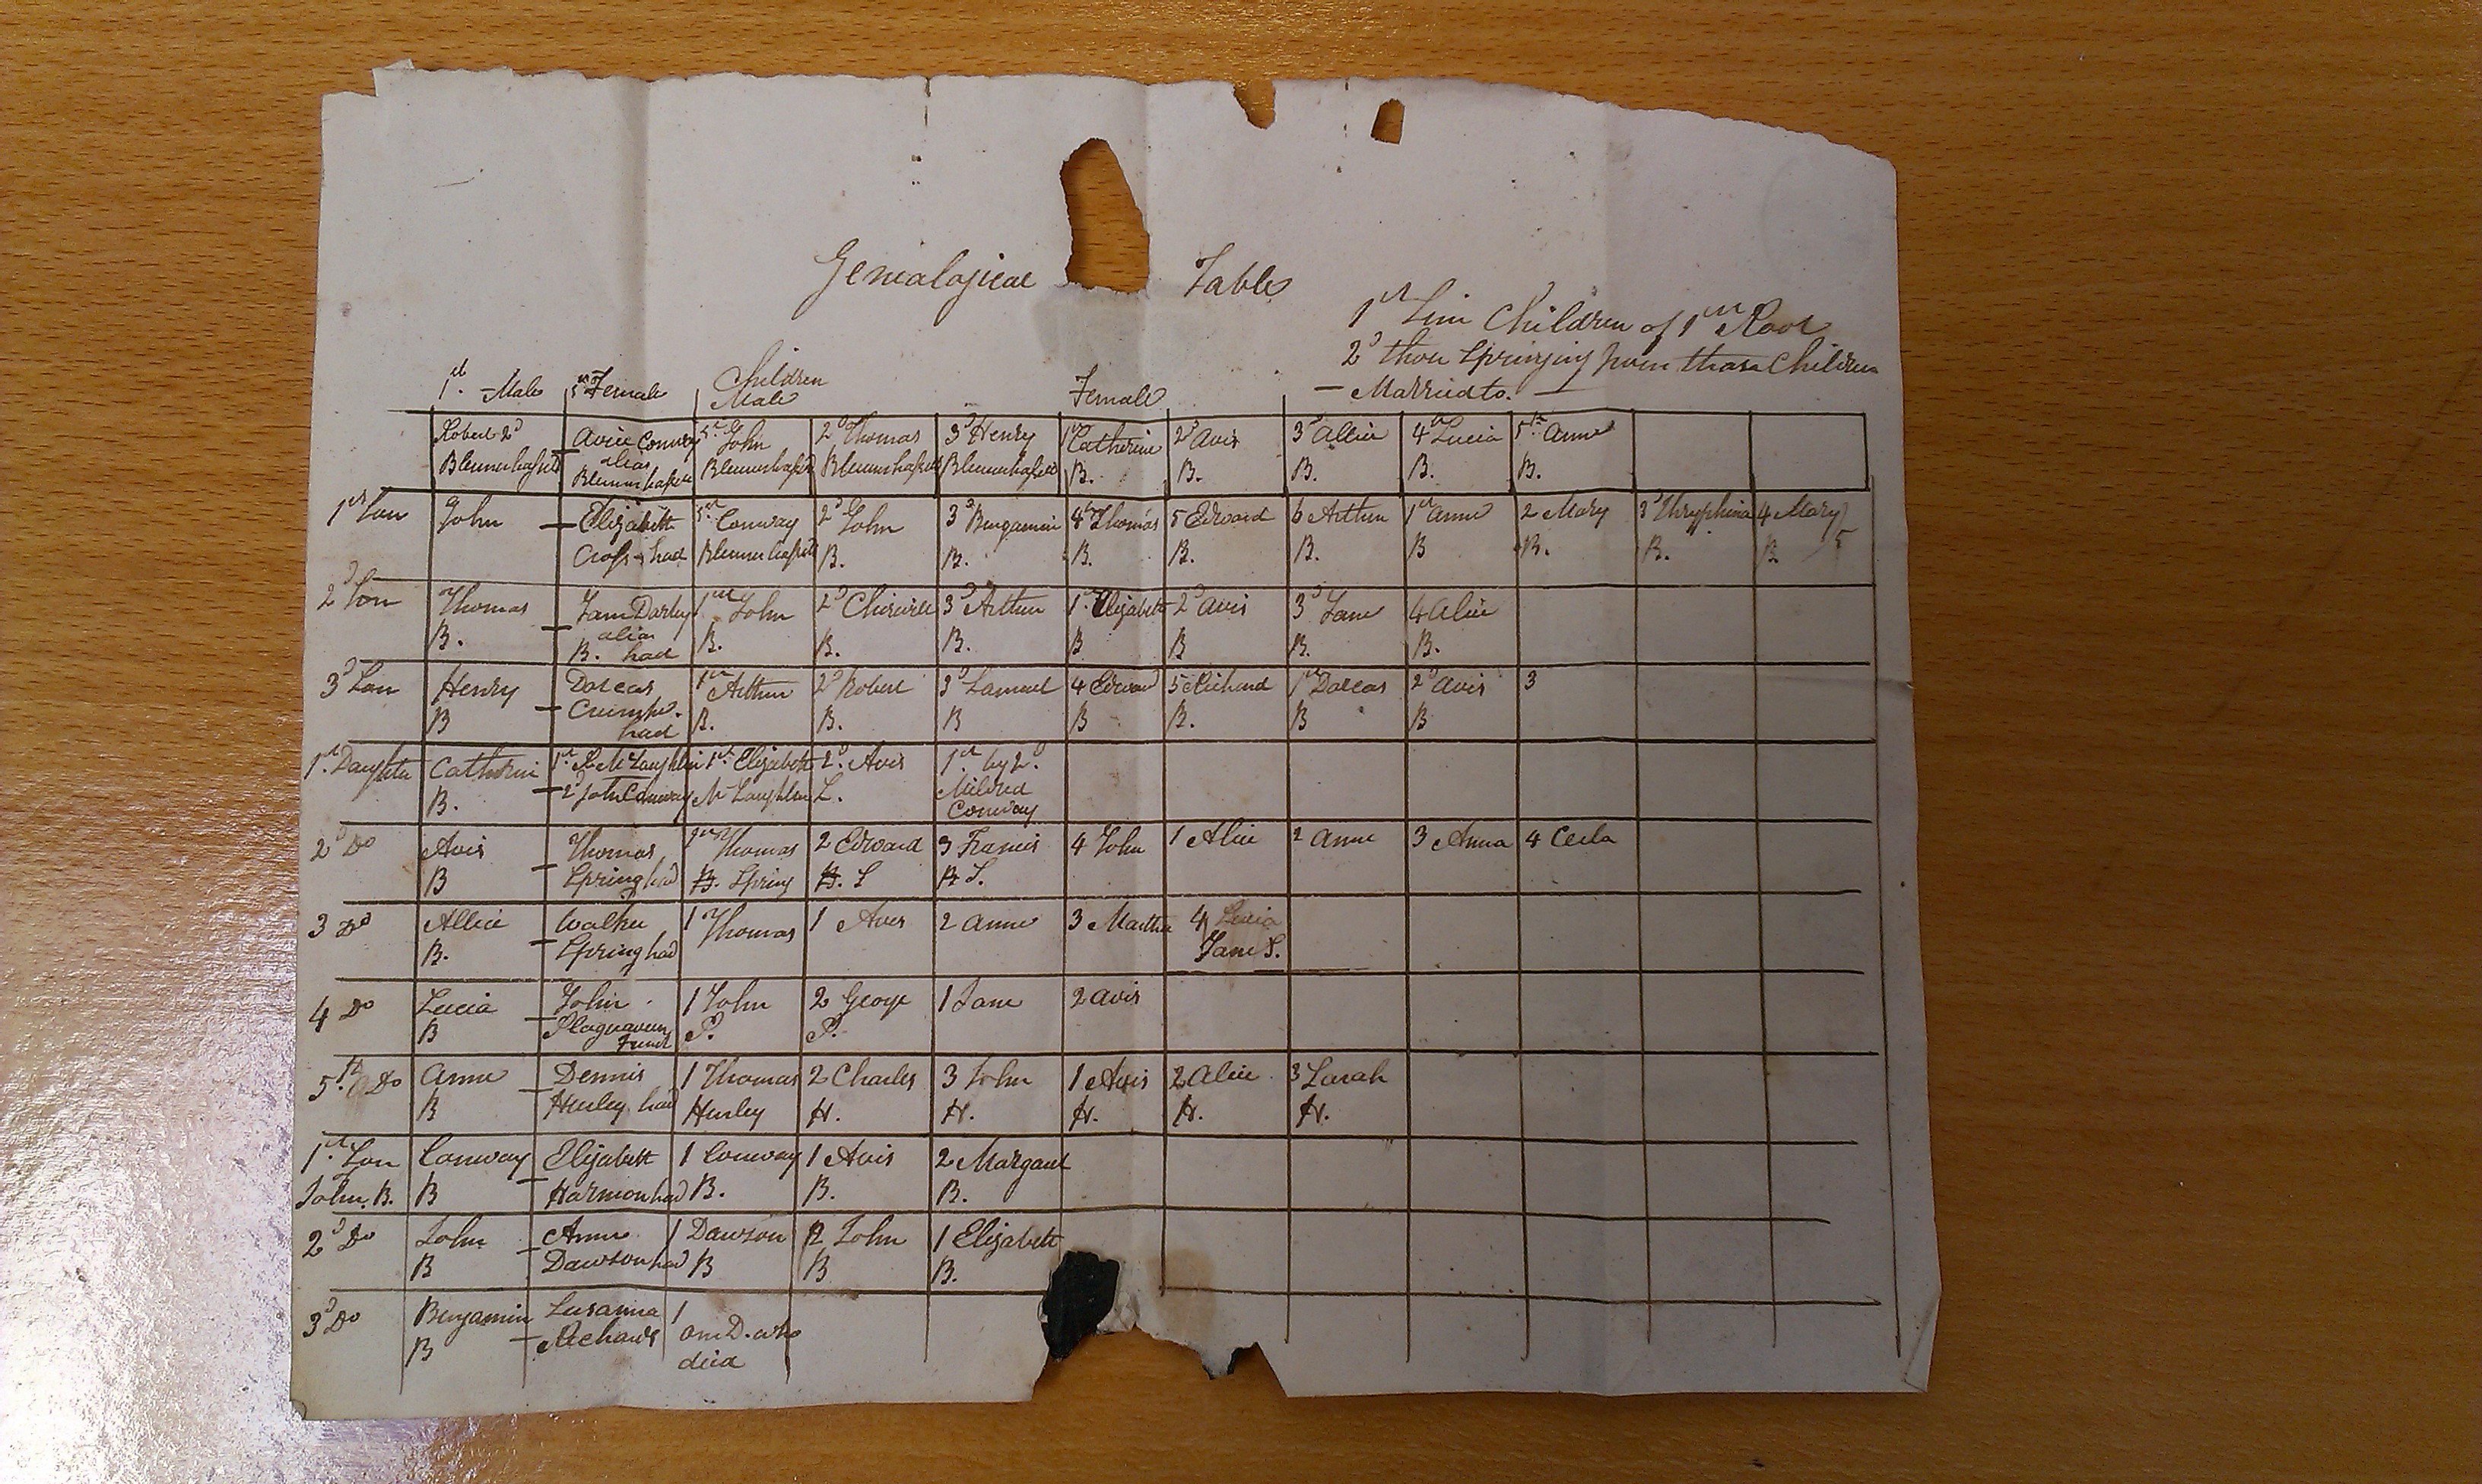 Genealogical Table
1st Line Children of 1st Root
2d those springing from those Children
— Married to. —
1st. Male 1st Female Children Male Female
Robert 2d Avice Conway 1st John 2d Thomas 3d Henry 1st Catherine 2d Avis 3d Allice 4th Lucia 5th Anne
Blennerhassett — alias Blennerhassett Blennerhassett Blennerhassett Blennerhassett B. B. B. B. B.
1st Son John — Elizabeth 1st Conway 2d John 3d Bengamin 4th Thomas 5 Edward 6 Arthur 1st Anne 2 Mary 3d Thryphina 4 Mary
Cross - had Blennerhassett B. B. B. B. B. B B. B. B.
2d Son Thomas Jane Darley 1st John 2d 3d Arthur 1st Elizabeth 2d Avis 3d Jane 4 Alice
B. — alias B. had B. B. B. B B B. B.
3d Son Henry Dorcas 1st Arthur 2d Robert 3d Samuel 4 Edward 5 Richard 1st Dorcas 2d Avis 3
B — Crumpe. had B. B. B B B. B B
1st. Daughter Catherine 1st. McLaughlin 1st. Elizabeth 2d. Avis 1st by 2d.
B. — 2d John Conway McLaughlin L. Mildred
Conway
2d Do Avis Thomas 1st Thomas 2 Edward 3 Francis 4 John 1 Alice 2 Anne 3 Anna 4
B — Spring had B. Spring B. S B S.
3 Do Allice Walter 1 Thomas 1 Aves 2 Anne 3 Martha 4 Lucia
B. — Spring had Jane S.
4 Do Lucia John 1 John 2 George 1 Jane 2 Avis
B — P. P.
5th. Do Anne Dennis 1 Thomas 2 Charles 3 John 1 Avis 2 Alice 3 Sarah
B — Hurley had Hurley H. H. H. H. H.
1st. Son Conway Elizabeth 1 Conway 1 Avis 2 Margaret
John. B. B — Harmon had B. B. B.
2d Do John Anne 1 Dawson 2 John 1 Elizabeth
B — Dawson had B B B.
3d Do Bengamin Susanna 1
B — one D. who
died